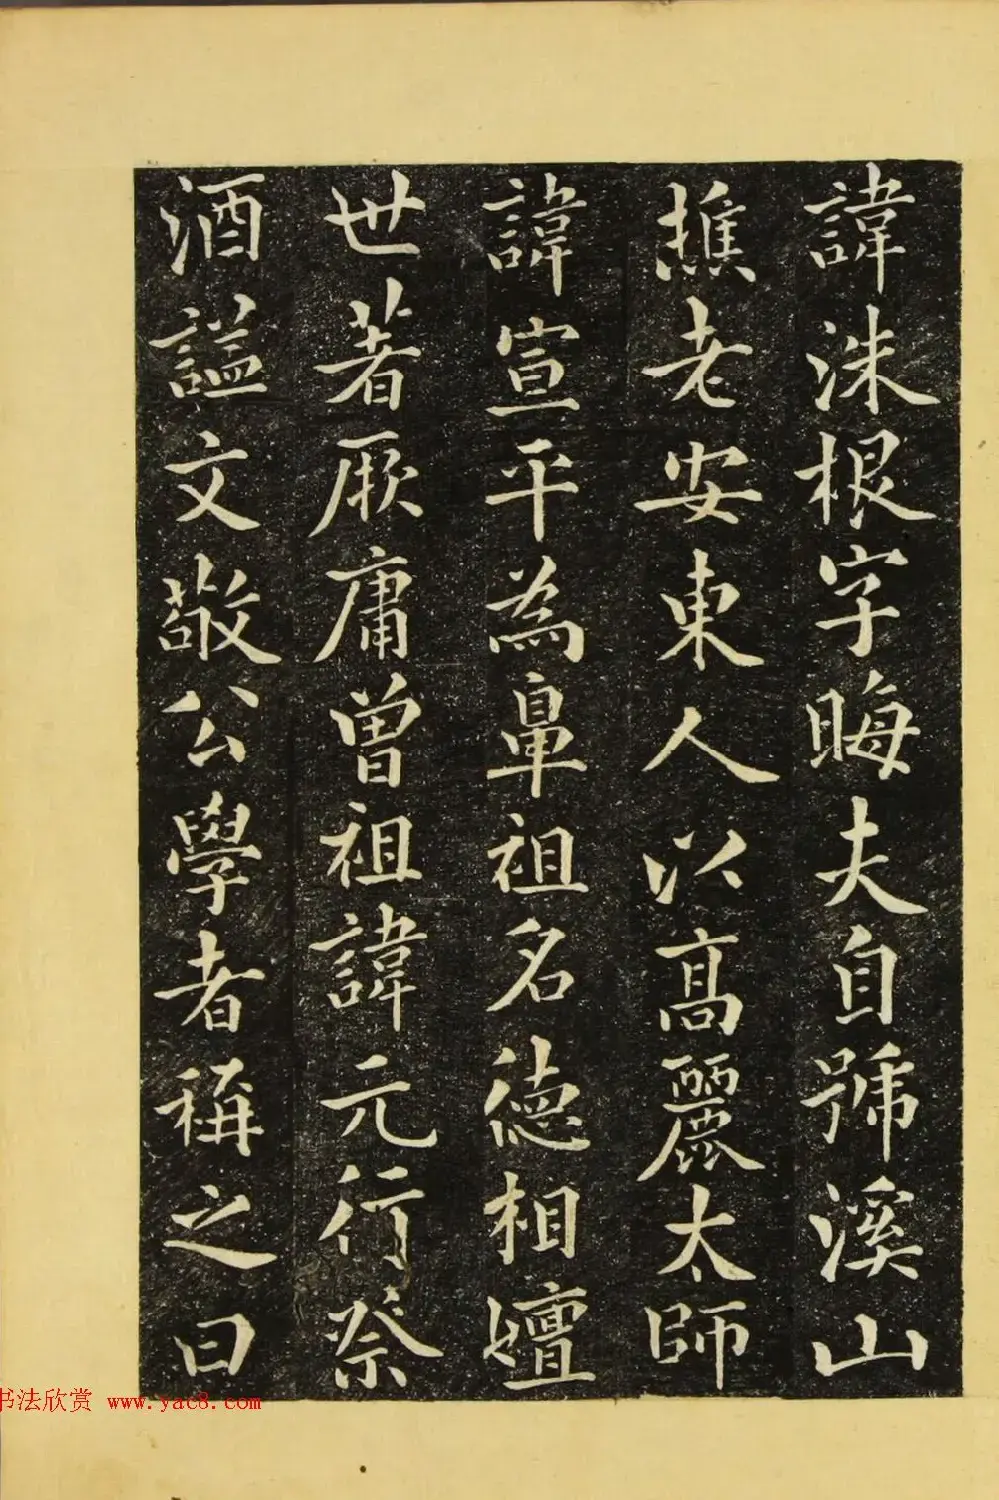 諱洙根字晦夫自號溪山
樵老安東人以高麗太師
諱宣平為鼻祖名德相嬗
世著厥庸曽祖諱元行祭
酒謚文敬公學者稱之曰
书法欣赏 www.yac8.com